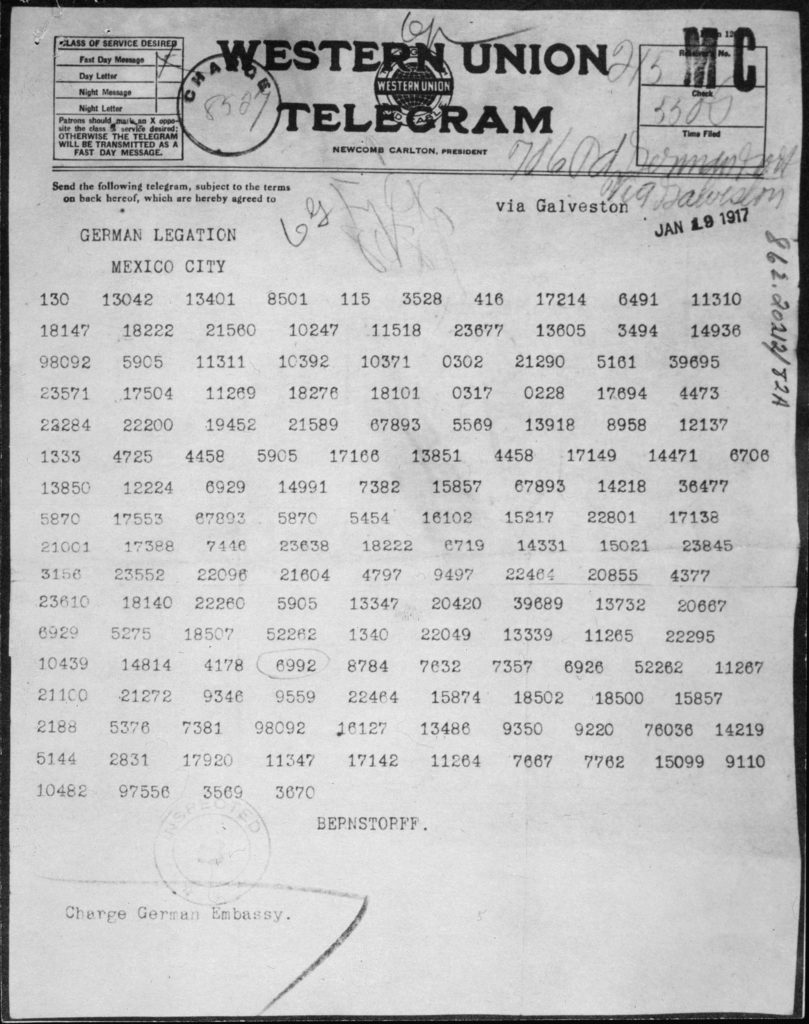 CLASS OF SERVICE DESIRED
Fast Day Message
Day Letter
Night Message
Night Letter
Patrons should mark an X oppo-
site the class of service desired;
OTHERWISE THE TELEGRAM
WILL BE TRANSMITTED AS A
FAST DAY MESSAGE.
CHARGE
WESTERN UNION
WESTERN UNION
TELEGRAM
NEWCOMB CARLTON, PRESIDENT
MC
Receiver's No.
Check
Time Filed
Send the following telegram, subject to the terms
on back hereof, which are hereby agreed to
via Galveston
via Galveston
JAN 19 1917
862.20212/82A
GERMAN LEGATION
MEXICO CITY
130 13042 13401 8501 115 3528 416 17214 6491 11310
18147 18222 21560 10247 11518 23677 13605 3494 14936
98092 5905 11311 10392 10371 0302 21290 5161 39695
23571 17504 11269 18276 18101 0317 0228 17694 4473
22284 22200 19452 21589 67893 5569 13918 8958 12137
1333 4725 4458 5905 17166 13851 4458 17149 14471 6706
13850 12224 6929 14991 7382 15857 67893 14218 36477
5870 17553 67893 5870 5454 16102 15217 22801 17138
21001 17388 7446 23638 18222 6719 14331 15021 23845
3156 23552 22096 21604 4797 9497 22464 20855 4377
23610 18140 22260 5905 13347 20420 39689 13732 20667
6929 5275 18507 52262 1340 22049 13339 11265 22295
10439 14814 4178 6992 8784 7632 7357 6926 52262 11267
21100 21272 9346 9559 22464 15874 18502 18500 15857
2188 5376 7381 98092 16127 13486 9350 9220 76036 14219
5144 2831 17920 11347 17142 11264 7667 7762 15099 9110
10482 97556 3569 3670
BEPNSTOPFF.
INSPECTED
Charge German Embassy.